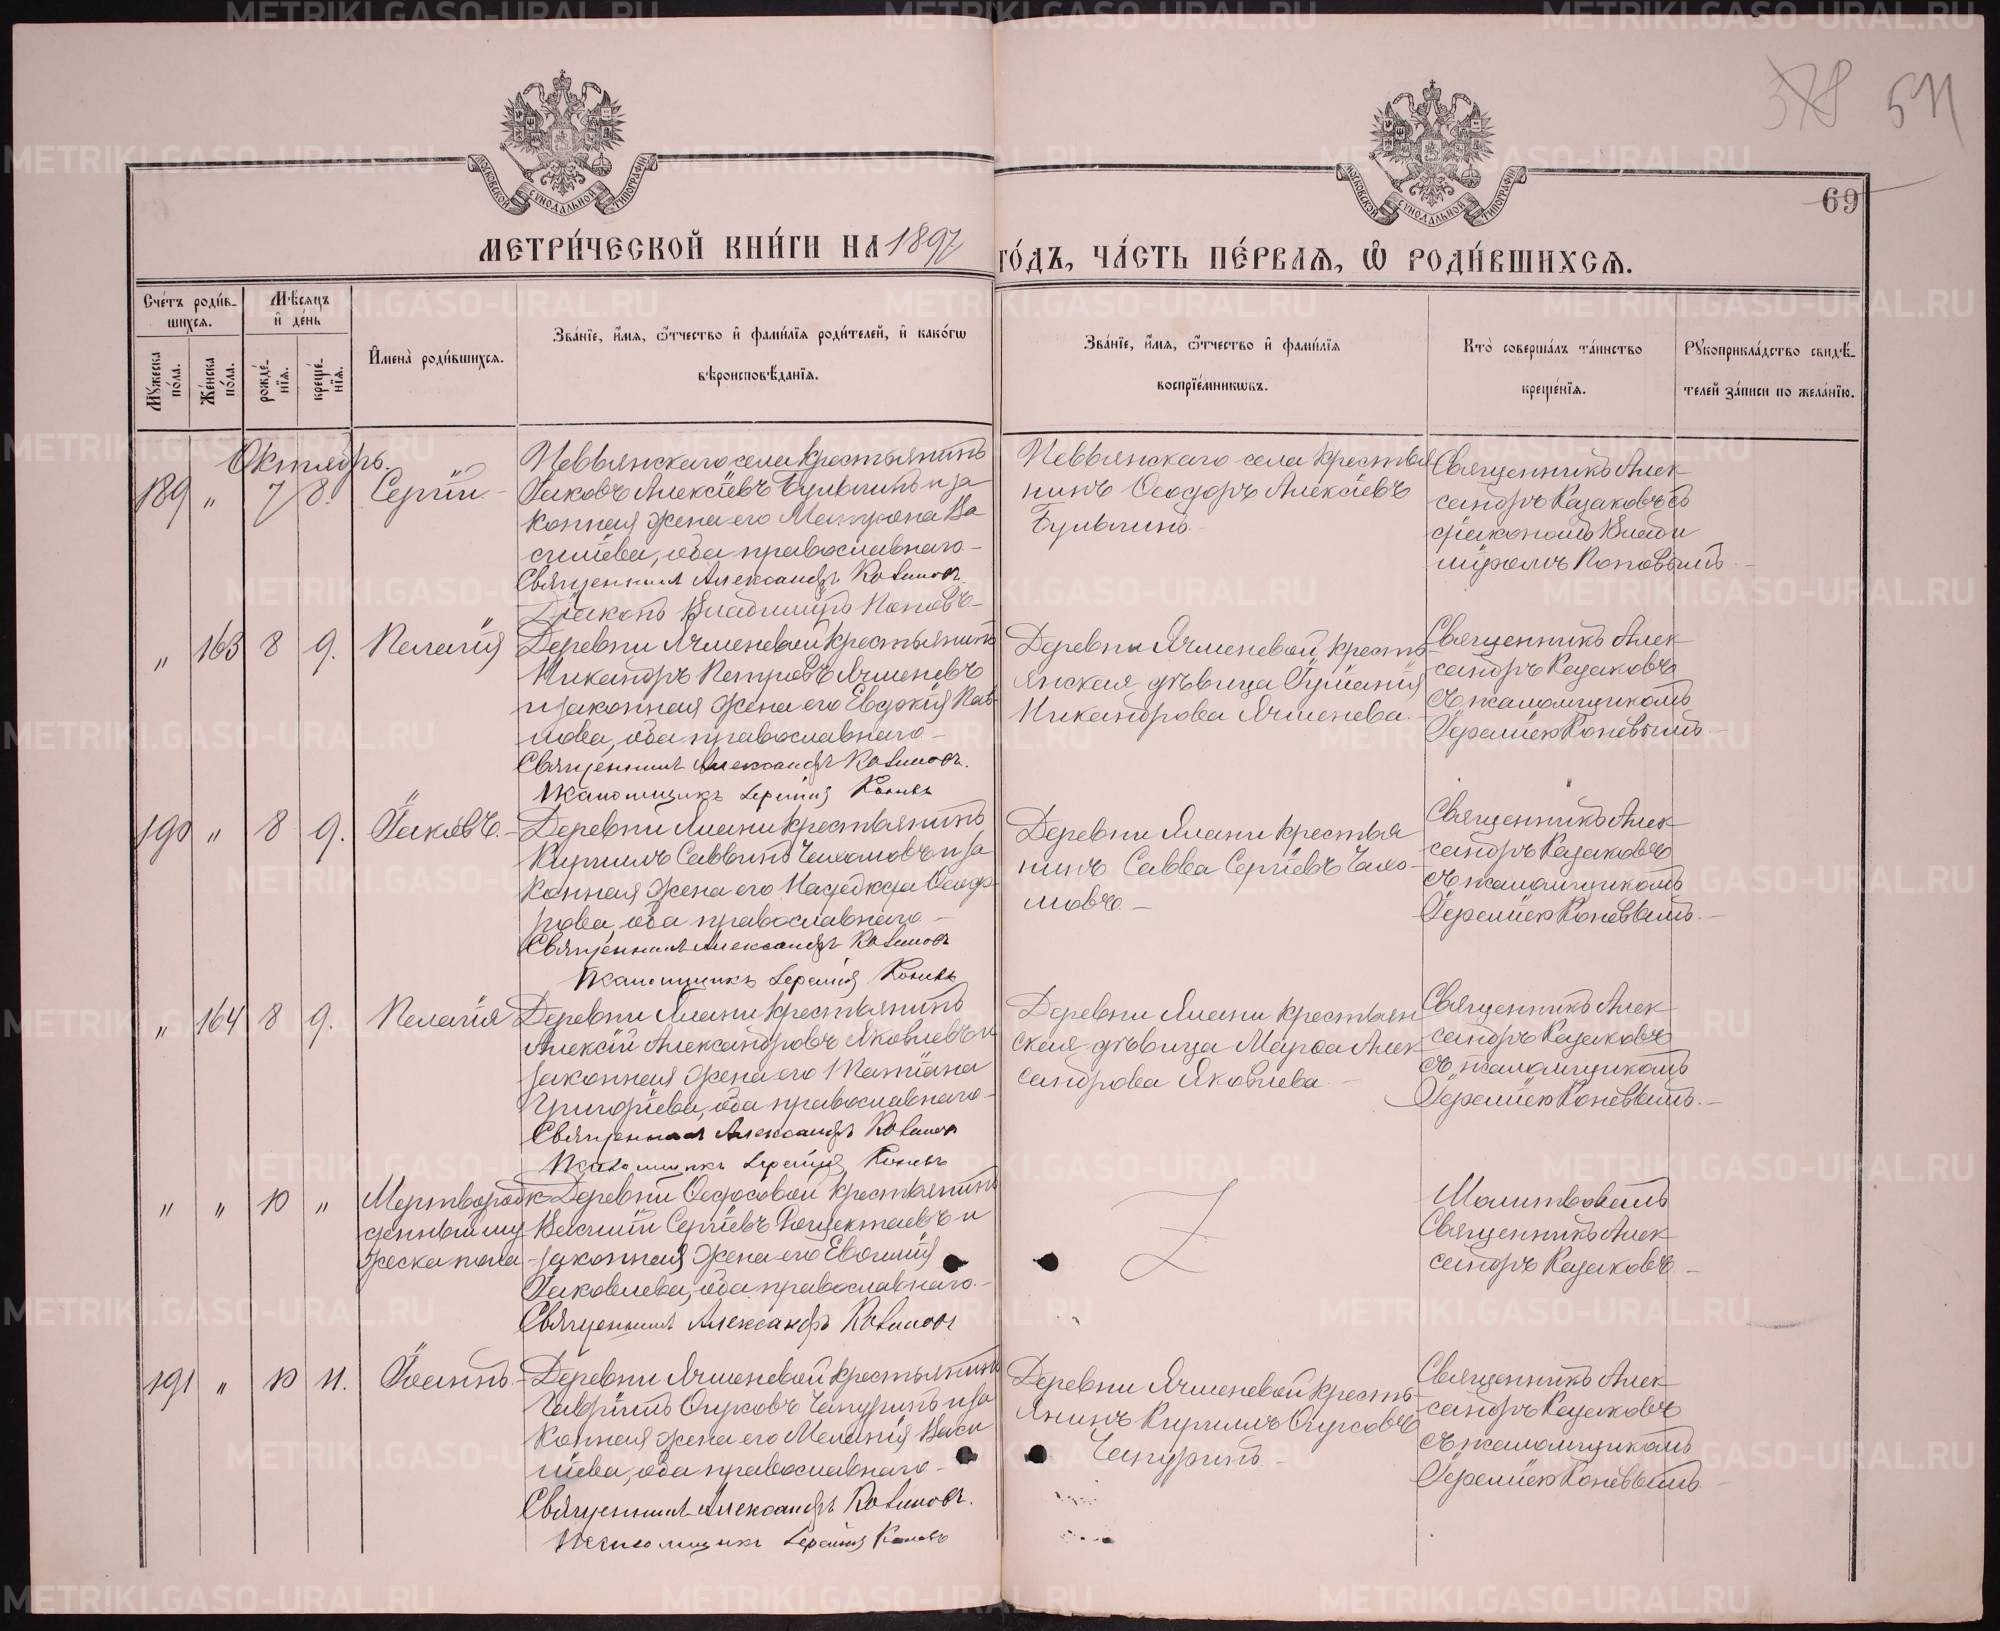 378 511
69
МОСКОВСКОЙ СѴНОДАЛЬНОЙ ТИПОГРАФІИ
МОСКОВСКОЙ СѴНОДАЛЬНОЙ ТИПОГРАФІИ
МЕТРИ́ЧЕСКОЙ КНИ́ГИ НА 1897 ГО́ДЪ, ЧА́СТЬ ПЕ́РВАѦ, Ѽ РОДИ́ВШИХСѦ.
Сче́тъ роди́в-
шихсѧ.
Мѣ́сѧцъ
и҆ де́нь
Мꙋ́жеска
по́ла.
Же́нска
по́ла.
рожде́-
нїѧ.
креще́-
нїѧ.
И҆мена̀ роди́вшихсѧ.
Зва́нїе, и҆́мѧ, ѻ҆́тчество и҆ фами́лїѧ роди́телей, и҆ како́гѡ
вѣроисповѣ́данїѧ.
Зва́нїе, и҆́мѧ, ѻ҆́тчество и҆ фами́лїѧ
воспрїе́мникѡвъ.
Кто̀ соверша́лъ та́инство
креще́нїѧ.
Рꙋкоприкла́дство свидѣ́-
телей за́писи по жела́нїю.
Октябрь.
189 " 7 8. Сергій.
Невьянскаго села крестьянинъ
Іаковъ Алексіевъ Булыгинъ и за
конная жена его Матрона Ва
силіева, оба православнаго
Священникъ Александръ Казаковъ.
Діаконъ Владиміръ Поповъ
Невьянскаго села крестья
нинъ Ѳеодоръ Алексіевъ
Булыгинъ
Священникъ Алек
сандръ Казаковъ съ
діакономъ Влади
міромъ Поповымъ
" 163 8 9. Пелагія
Деревни Ячменевой крестьянинъ
Никандръ Петровъ Ячменевъ
и законная жена его Евдокія Пав
лова, оба православнаго
Священникъ Александръ Казаковъ.
Псаломщикъ Іеремія Коневъ
Деревни Ячменевой кресть
янская дѣвица Іуліанія
Никандрова Ячменева.
Священникъ Алек
сандръ Казаковъ
съ псаломщикомъ
Іереміею Коневымъ
190 " 8 9. Іаковъ
Деревни Ялани крестьянинъ
Кириллъ Саввинъ Чахломовъ и за
конная жена его Надежда Ѳеодо
рова, оба православнаго
Священникъ Александръ Казаковъ
Псаломщикъ Іеремія Коневъ
Деревни Ялани крестья
нинъ Савва Сергіевъ
Священникъ Алек
сандръ Казаковъ
съ псаломщикомъ
Іереміею Коневымъ.
" 164 8 9. Пелагія
Деревни Ялани крестьянинъ
Алексій Александровъ Яковлевъ и
законная жена его Татіана
Григоріева, оба православнаго
Священникъ Александръ Казаковъ
Псаломщикъ Іеремія Коневъ
Деревни Ялани крестьян
ская дѣвица Марѳа Алек
сандрова Яковлева
Священникъ Алек
сандръ Казаковъ
съ псаломщикомъ
Іереміею Коневымъ.
" " 10 " Мертворож
денный му
жеска пола
Деревни Ѳедосовой крестьянинъ
Василій Сергіевъ и
законная жена его Евѳимія
Іаковлева, оба православнаго
Священникъ Александръ Казаковъ
Молитвовалъ
Священникъ Алек
сандръ Казаковъ
191 " 10 11. Іоаннъ
Деревни Ячменевой крестьянинъ
Гавріилъ Фирсовъ Чепуринъ и за
конная жена его Меланія Васи
ліева, оба православнаго
Священникъ Александръ Казаковъ.
Псаломщикъ Іеремія Коневъ
Деревни Ячменевой кресть
янинъ Кириллъ Фирсовъ
Чепуринъ
Священникъ Алек
сандръ Казаковъ
съ псаломщикомъ
Іереміею Коневымъ
METRIKI.GASO-URAL.RU